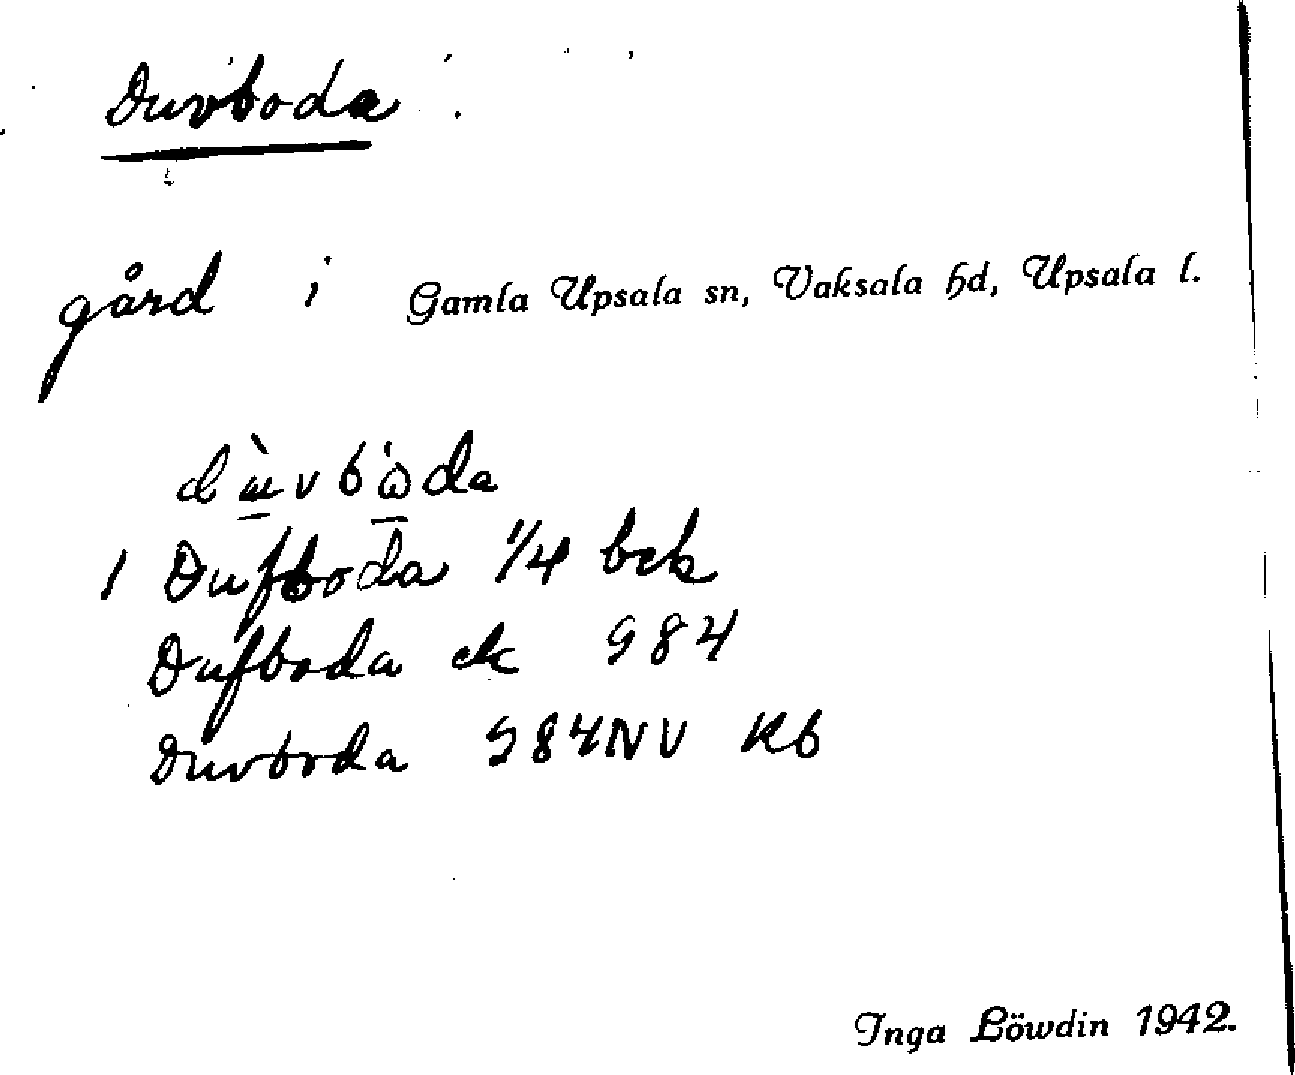 Duvboda
gård i Gamla Upsala sn, Vaksala hd, Upsala l.
1 Dufboda 1/4 bek
Dufboda ek 984
Duvboda 984 NV Kb
Inga Löwdin 1942.